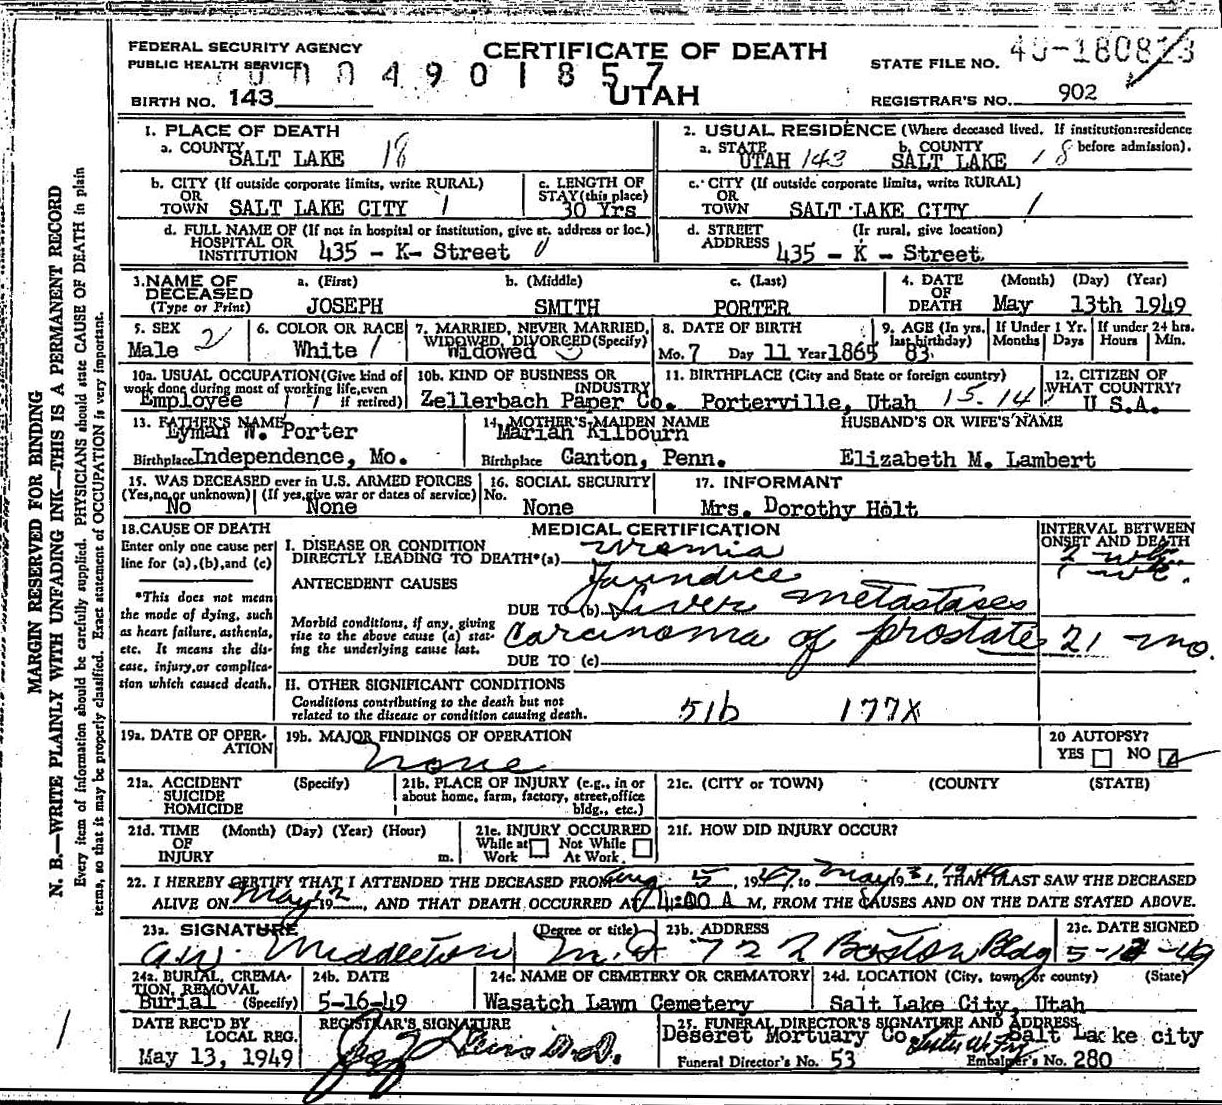 FEDERAL SECURITY AGENCY
PUBLIC HEALTH SERVICE
CERTIFICATE OF DEATH
UTAH
STATE FILE NO.
4901857
BIRTH NO. 143
REGISTRAR'S NO. 902
MARGIN RESERVED FOR BINDING
N. B.—WRITE PLAINLY WITH UNFADING INK—THIS IS A PERMANENT RECORD
Every item of information should be carefully supplied. PHYSICIANS should state CAUSE OF DEATH in plain
terms, so that it may be properly classified. Exact statement of OCCUPATION is very important.
1. PLACE OF DEATH
a. COUNTY SALT LAKE 18
2. USUAL RESIDENCE (Where deceased lived. If institution: residence before admission).
a. STATE UTAH 143 b. COUNTY SALT LAKE 18
b. CITY (If outside corporate limits, write RURAL) OR TOWN SALT LAKE CITY 1
c. LENGTH OF STAY (this place) 30 Yrs
c. CITY (If outside corporate limits, write RURAL) OR TOWN SALT LAKE CITY 1
d. FULL NAME OF (If not in hospital or institution, give st. address or loc.) HOSPITAL OR INSTITUTION 435 - K- Street
d. STREET ADDRESS (If rural, give location) 435 - K - Street
3. NAME OF DECEASED (Type or Print)
a. (First) JOSEPH b. (Middle) SMITH c. (Last) PORTER
4. DATE OF DEATH (Month) (Day) (Year) May 13th 1949
5. SEX Male 2
6. COLOR OR RACE White 1
7. MARRIED, NEVER MARRIED, WIDOWED, DIVORCED (Specify) Widowed
8. DATE OF BIRTH Mo. 7 Day 11 Year 1865
9. AGE (In yrs. last birthday) 83
If Under 1 Yr. Months Days
If under 24 hrs. Hours Min.
10a. USUAL OCCUPATION (Give kind of work done during most of working life, even if retired) Employee
10b. KIND OF BUSINESS OR INDUSTRY Zellerbach Paper Co.
11. BIRTHPLACE (City and State or foreign country) Porterville, Utah 15.14
12. CITIZEN OF WHAT COUNTRY? U S.A.
13. FATHER'S NAME Lyman W. Porter
Birthplace Independence, Mo.
14. MOTHER'S MAIDEN NAME Mariah Kilbourn
Birthplace Canton, Penn.
HUSBAND'S OR WIFE'S NAME
Elizabeth M. Lambert
15. WAS DECEASED ever in U.S. ARMED FORCES
(Yes, no, or unknown) No (If yes, give war or dates of service) None
16. SOCIAL SECURITY No. None
17. INFORMANT
Mrs. Dorothy Holt
18. CAUSE OF DEATH
Enter only one cause per line for (a), (b), and (c)
*This does not mean the mode of dying, such as heart failure, asthenia, etc. It means the disease, injury, or complication which caused death.
MEDICAL CERTIFICATION
INTERVAL BETWEEN ONSET AND DEATH
I. DISEASE OR CONDITION DIRECTLY LEADING TO DEATH*(a) Uremia
ANTECEDENT CAUSES
Jaundice
DUE TO (b) Liver metastases
Morbid conditions, if any, giving rise to the above cause (a) stating the underlying cause last.
Carcinoma of prostate 21 mo.
DUE TO (c)
II. OTHER SIGNIFICANT CONDITIONS
Conditions contributing to the death but not related to the disease or condition causing death.
51b 177X
19a. DATE OF OPERATION
19b. MAJOR FINDINGS OF OPERATION
none
20 AUTOPSY?
YES NO
21a. ACCIDENT SUICIDE HOMICIDE (Specify)
21b. PLACE OF INJURY (e.g., in or about home, farm, factory, street, office bldg., etc.)
21c. (CITY or TOWN) (COUNTY) (STATE)
21d. TIME OF INJURY (Month) (Day) (Year) (Hour) m.
21e. INJURY OCCURRED While at Work Not While At Work
21f. HOW DID INJURY OCCUR?
22. I HEREBY CERTIFY THAT I ATTENDED THE DECEASED FROM Aug 5, 1947, to May, THAT I LAST SAW THE DECEASED
ALIVE ON May 12, AND THAT DEATH OCCURRED AT 4:00 A M, FROM THE CAUSES AND ON THE DATE STATED ABOVE.
23a. SIGNATURE (Degree or title) A.W. Middleton M.D
23b. ADDRESS 722 Boston Bldg
23c. DATE SIGNED
24a. BURIAL, CREMATION, REMOVAL (Specify) Burial
24b. DATE 5-16-49
24c. NAME OF CEMETERY OR CREMATORY Wasatch Lawn Cemetery
24d. LOCATION (City, town, or county) (State) Salt Lake City, Utah
DATE REC'D BY LOCAL REG. May 13, 1949
REGISTRAR'S SIGNATURE
25. FUNERAL DIRECTOR'S SIGNATURE AND ADDRESS
Deseret Mortuary Co. Salt Lake city
Funeral Director's No. 53
Embalmer's No. 280